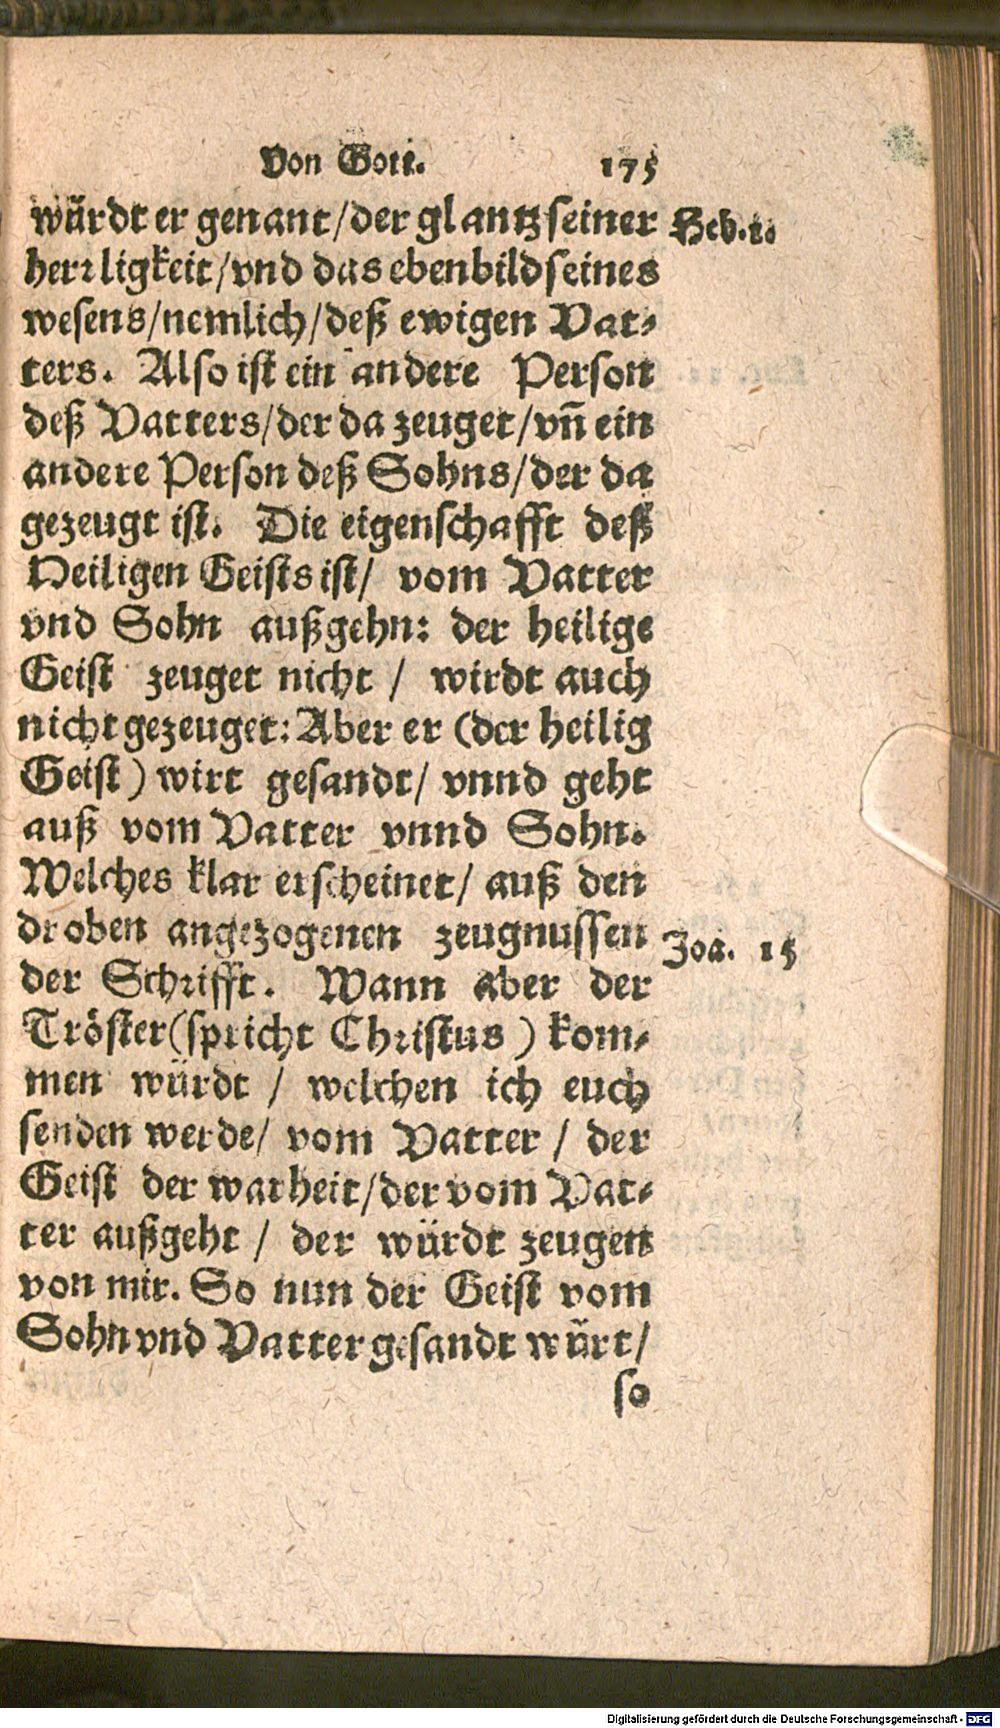 Von Gott. 175
würdt er genant/der glantz seiner Heb.1.
herrligkeit/vnd das ebenbild seines
wesens/nemlich/deß ewigen Vat-
ters. Also ist ein andere Person
deß Vatters/der da zeuget/vñ ein
andere Person deß Sohns/der da
gezeugt ist. Die eigenschafft deß
Heiligen Geists ist/ vom Vatter
vnd Sohn außgehn: der heilige
Geist zeuget nicht / wirdt auch
nicht gezeuget: Aber er (der heilig
Geist) wirt gesandt/ vnnd geht
auß vom Vatter vnnd Sohn.
Welches klar erscheinet/ auß den
droben angezogenen zeugnussen Joa. 15
der Schrifft. Wann aber der
Tröster (spricht Christus) kom-
men würdt / welchen ich euch
senden werde/ vom Vatter / der
Geist der warheit/der vom Vat-
ter außgeht / der würdt zeugen
von mir. So nun der Geist vom
Sohn vnd Vatter gesandt würt/
so
Digitalisierung gefördert durch die Deutsche Forschungsgemeinschaft - DFG